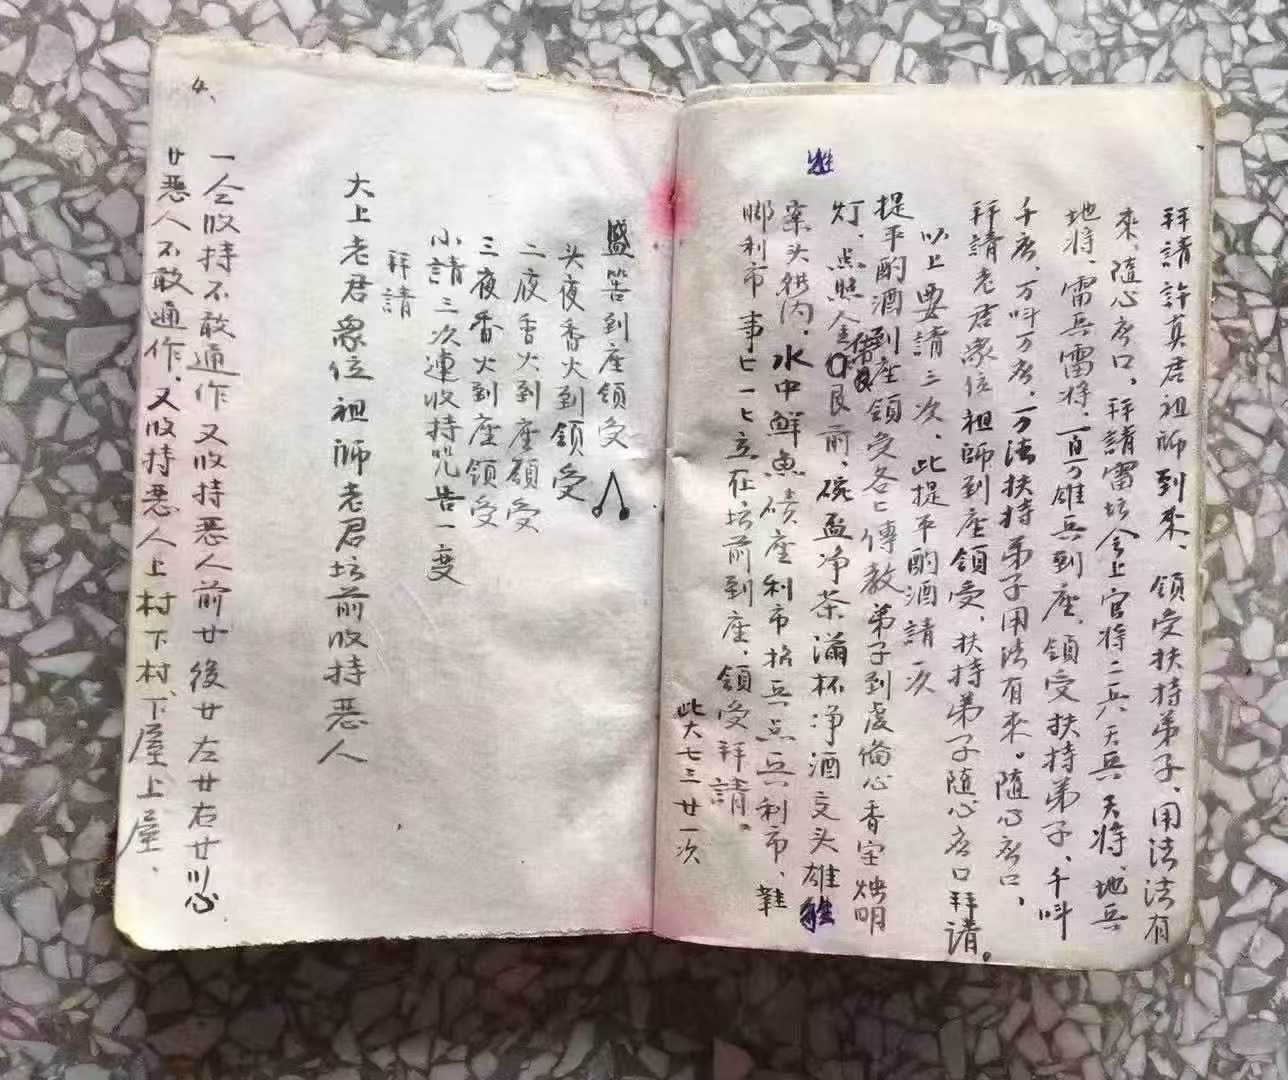 拜請許真君祖師到來、領受扶持弟子、用法法有
來、隨心應口、拜請雷坛会上官将二兵天兵天将、地兵
地将、雷兵雷将、一百万雄兵到座、領受扶持弟子、千叫
千應、万叫万應、一万法扶持弟子用法有來。隨心應口、
拜請老君衆位祖師到座領受、扶持弟子隨心應口拜請。
以上要請三次、此提平酌酒請一次
提平酌酒到座領受各匕傳教弟子到虔備心香宝燭明
灯、点照人 艮前、碗盃净茶滿杯净酒交头雄
案头 内、水中鮮魚 座利市 兵点兵利市、鞋
脚利市事匕一匕立在坛前到座、領受拜請。
此大七三廿一次
盛筈到座領受
头夜香火到領受
二夜香火到座領受
三夜香火到座領受
小請三次連收持咒告一变
拜請
大上老君衆位祖師老君坛前收持惡人
4、
一会收持不敢通作又收持惡人前廿後廿左廿右廿
廿惡人不敢通作、又收持惡人上村下村、下屋上屋、